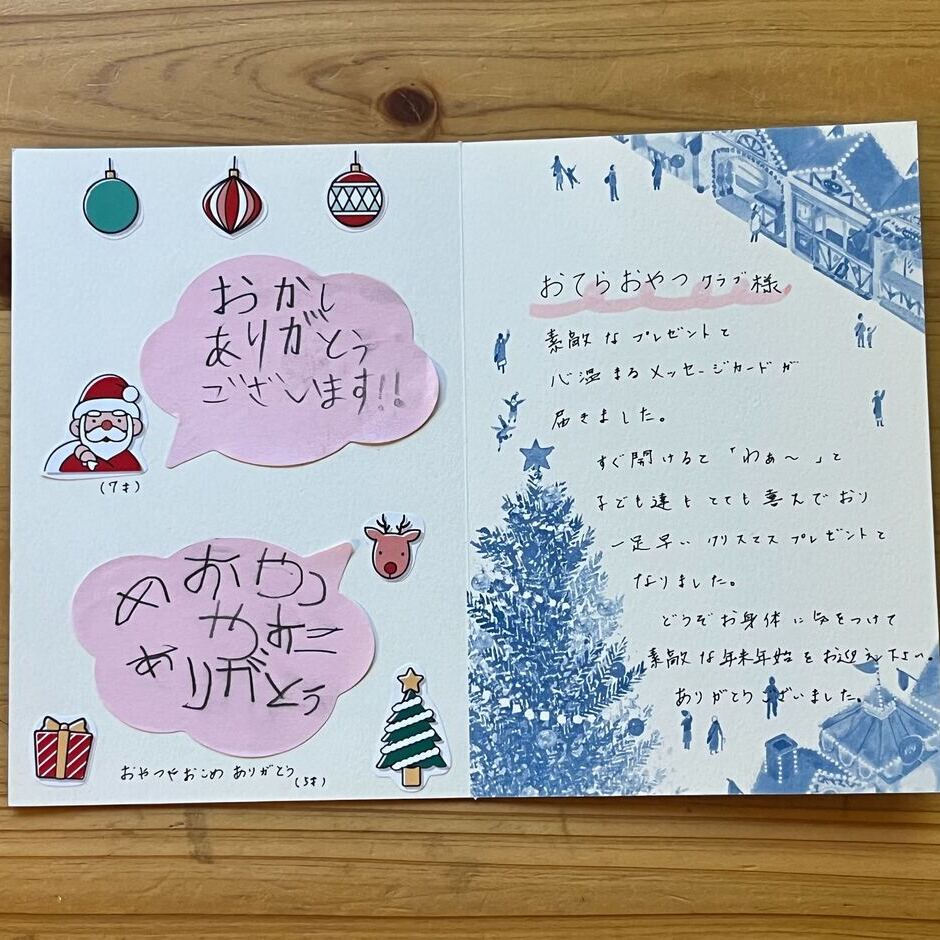 おかし
ありがとう
ございます!!
(7才)
めおやつ
やおこ
ありがとう
おやつやおこめ ありがとう
(5才)
おてらおやつクラブ様
素敵なプレゼントと
心温まるメッセージカードが
届きました。
すぐ開けると「わぁ〜」と
子ども達もとても喜んでおり
一足早いクリスマスプレゼントと
なりました。
どうぞお身体に気をつけて
素敵な年末年始をお迎え下さい。
ありがとうございました。